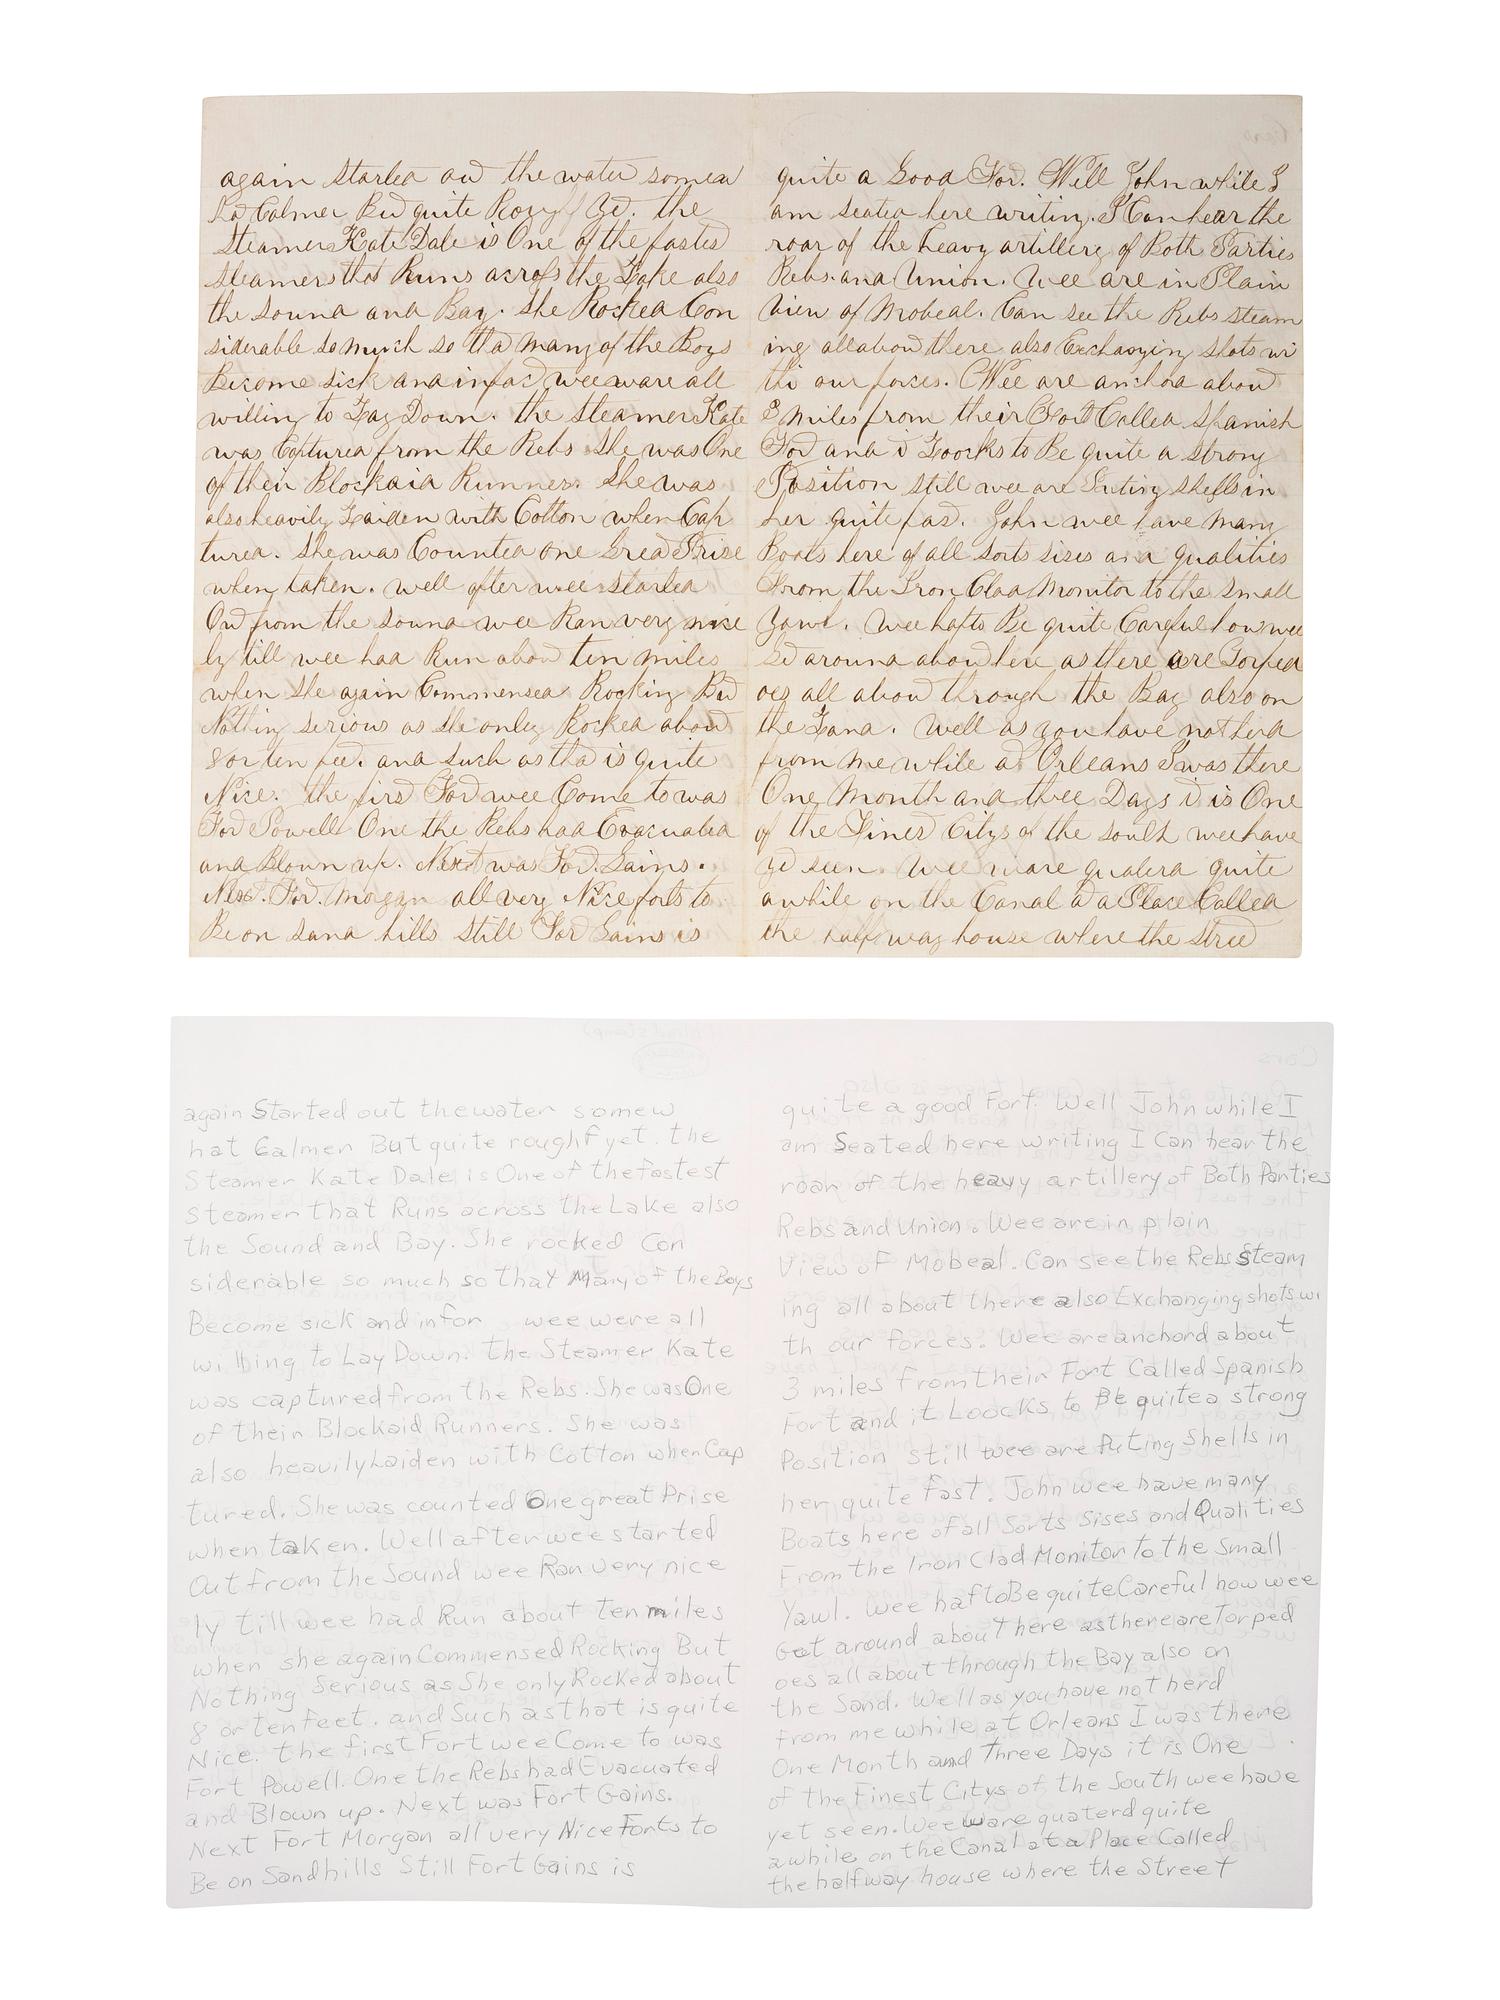 again started out the water somew
hat Calmer But quite Rough yet. the
Steamer Kate Dale is One of the fastest
steamers that Runs across the Lake also
the Sound and Bay. She Rocked Con
siderable so much so that many of the Boys
Become sick and infact wee ware all
willing to Lay Down. the Steamer Kate
was Captured from the Rebs She was One
of their Blockaid Runners. She was
also heavily Laiden with Cotton when Cap
tured. She was Counted one Great Prise
when taken. well after wee started
Out from the Sound wee Ran very nice
ly till wee had Run about ten miles
when She again Commensed Rocking But
Nothing serious as She only Rocked about
8 or ten feet. and such as that is quite
Nice. the first Fort wee Come to was
Fort Powell One the Rebs had Evacuated
and Blown up. Next was Fort. Gains.
Next. Fort. Morgan all very Nice forts to
Be on Sand hills still Fort Gains is
quite a Good Fort. Well John while I
am seated here writing. I Can hear the
roar of the heavy artillery of Both Parties
Rebs. and Union. Wee are in Plain
View of Mobeal. Can see the Rebs steam
ing all about there also Exchanging shots wi
th our forces. Wee are anchord about
3 miles from their Fort Called Spanish
Fort and it Loocks to Be quite a strong
Position still wee are Puting shells in
her quite fast. John wee have many
Boats here of all sorts sises and qualities
From the Iron Clad Monitor to the small
Yawl. Wee hafto Be quite Careful how wee
Get around about here as there are Torped
oes all about through the Bay also on
the Land. Well as you have not herd
from me while at Orleans I was there
One Month and three Days it is One
of the Finest Citys of the south wee have
yet seen. Wee ware quaterd quite
awhile on the Canal at a Place Called
the half way house where the street
again Started out the water somew
hat Calmer But quite rough yet. the
Steamer Kate Dale is One of the fastest
Steamer that Runs across the Lake also
the Sound and Bay. She rocked Con
siderable so much so that Many of the Boys
Become sick and infor wee were all
willing to Lay Down. the Steamer Kate
was captured from the Rebs. She was One
of their Blockaid Runners. She was
also heavily Laiden with Cotton when Cap
tured. She was counted One great Prise
when taken. Well after wee started
Out from the Sound wee Ran very nice
ly till wee had Run about ten miles
when she again Commensed Rocking But
Nothing Serious as She only Rocked about
8 or ten feet. and Such as that is quite
Nice. the first Fort wee Come to was
Fort Powell. One the Rebs had Evacuated
and Blown up. Next was Fort Gains.
Next Fort Morgan all very Nice Forts to
Be on Sandhills Still Fort Gains is
quite a good Fort. Well John while I
am Seated here writing I Can hear the
roar of the heavy artillery of Both Parties
Rebs and Union. Wee are in plain
View of Mobeal. Can see the Rebs Steam
ing all about there also Exchanging shots wi
th our forces. Wee are anchord about
3 miles from their Fort Called Spanish
Fort and it Loocks to Be quite a strong
Position still wee are Puting Shells in
her quite fast. John wee have many
Boats here of all Sorts Sises and Qualities
From the Iron Clad Monitor to the Small
Yawl. Wee hafto Be quite Careful how wee
Get around about here as there are Torped
oes all about through the Bay also on
the Sand. Well as you have not herd
from me while at Orleans I was there
One Month and Three Days it is One
of the Finest Citys of the South wee have
yet seen. Wee ware quaterd quite
awhile on the Canal at a Place Called
the halfway house where the Street